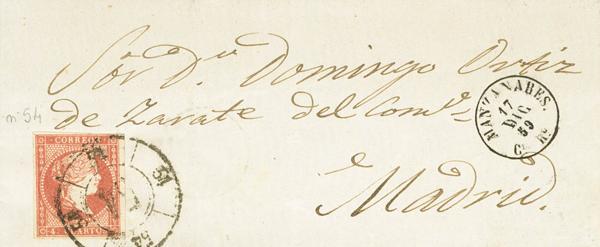 Sor. Dn. Domingo Ortiz
de Zarate del Come.
Madrid.
MANZANARES.
17
DIC
59
nº 54
CORREOS
4 CUARTOS
51